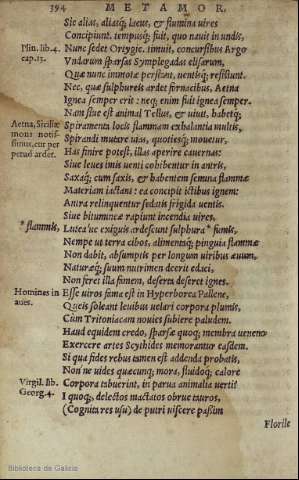 394 METAMOR.
Sic alias, aliasq́; lacus, & flumina uires
Concipiunt. tempusq́; fuit, quo nauit in undis,
Plin. lib. 4. Nunc sedet Ortygie. timuit, concursibus Argo
cap. 13. Vndarum sparsas Symplegadas elisarum,
Quæ nunc immotæ persistunt, uentisq́; resistunt.
Nec, quæ sulphureis ardet fornacibus, Aetna
Ignea semper erit: neq; enim fuit ignea semper.
Nam siue est animal Tellus, & uiuit, habetq́;
Aetna, Siciliæ Spiramenta locis flammam exhalantia multis,
mons notis- Spirandi mutare uias, quotiesq́; mouetur,
simus, cur per Has finire potest, illas aperire cauernas:
petuò ardet. Siue leues imis uenti cohibentur in antris,
Saxaq́; cum saxis, & habentem semina flammæ
Materiam iactant: ea concipit ictibus ignem:
Antra relinquentur sedatis frigida uentis.
Siue bitumineæ rapiunt incendia uires,
*flammis, Luteaue exiguis ardescunt sulphura *fumis,
Nempe ubi terra cibos, alimentaq́; pinguia flammæ
Non dabit, absumptis per longum uiribus æuum,
Naturæq́; suum nutrimen deerit edaci,
Non feret illa famem, deserta deseret ignes.
Homines in Esse uiros fama est in Hyperborea Pallene,
aues. Queis soleant leuibus uelari corpora plumis,
Cùm Tritoniacam nouies subiere paludem.
Haud equidem credo, sparsæ quoq; membra ueneno
Exercere artes Scythides memorantur easdem.
Si qua fides rebus tamen est addenda probatis,
Non ne uides quæcunq; mora, fluidoq́; calore
Virgil. lib. Corpora tabuerint, in parua animalia uerti?
Georg. 4. I quoq́;, delectos mactatos obrue tauros,
(Cognita res usu) de putri uiscere passim
Florile
Biblioteca de Galicia